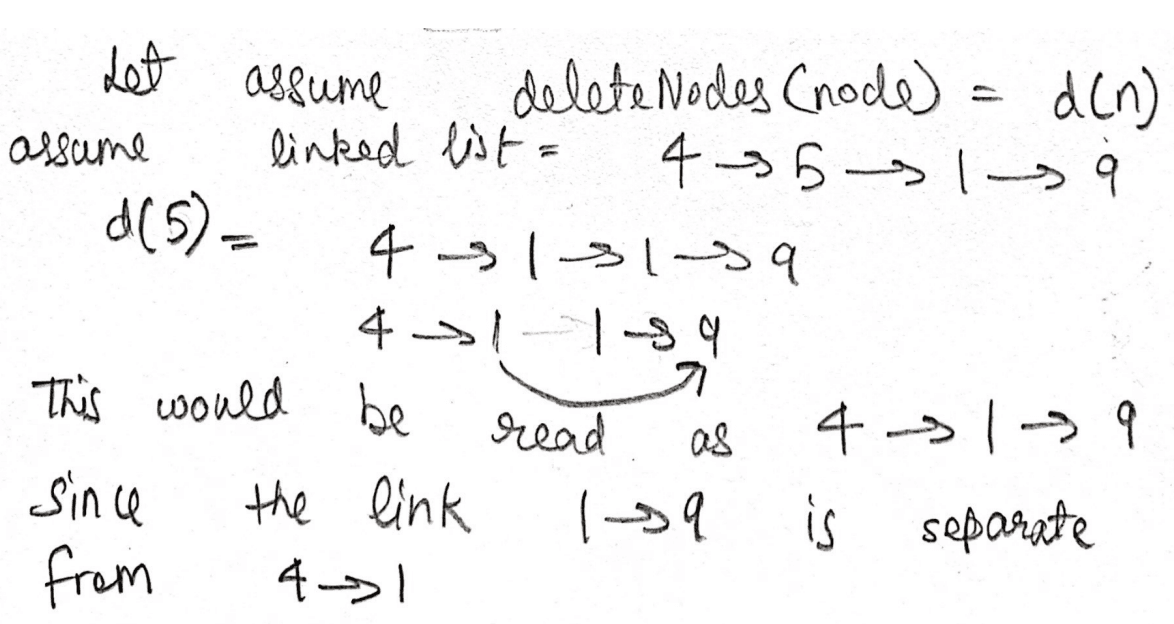 Let assume deleteNodes (node) = d(n)
assume linked list = 4 → 5 → 1 → 9
d(5) = 4 → 1 → 1 → 9
4 → 1 → 1 → 9
This would be read as 4 → 1 → 9
Since the link 1 → 9 is separate
from 4 → 1